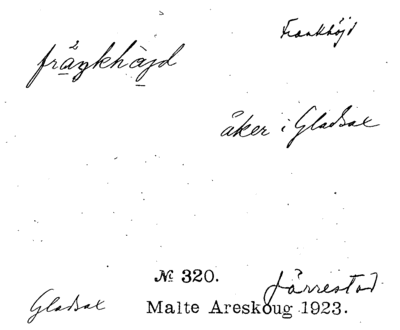 Frankhöjd
frąŋkhàjd
åker i Gladsax
№ 320.
Järrestad
Gladsax
Malte Areskoug 1923.